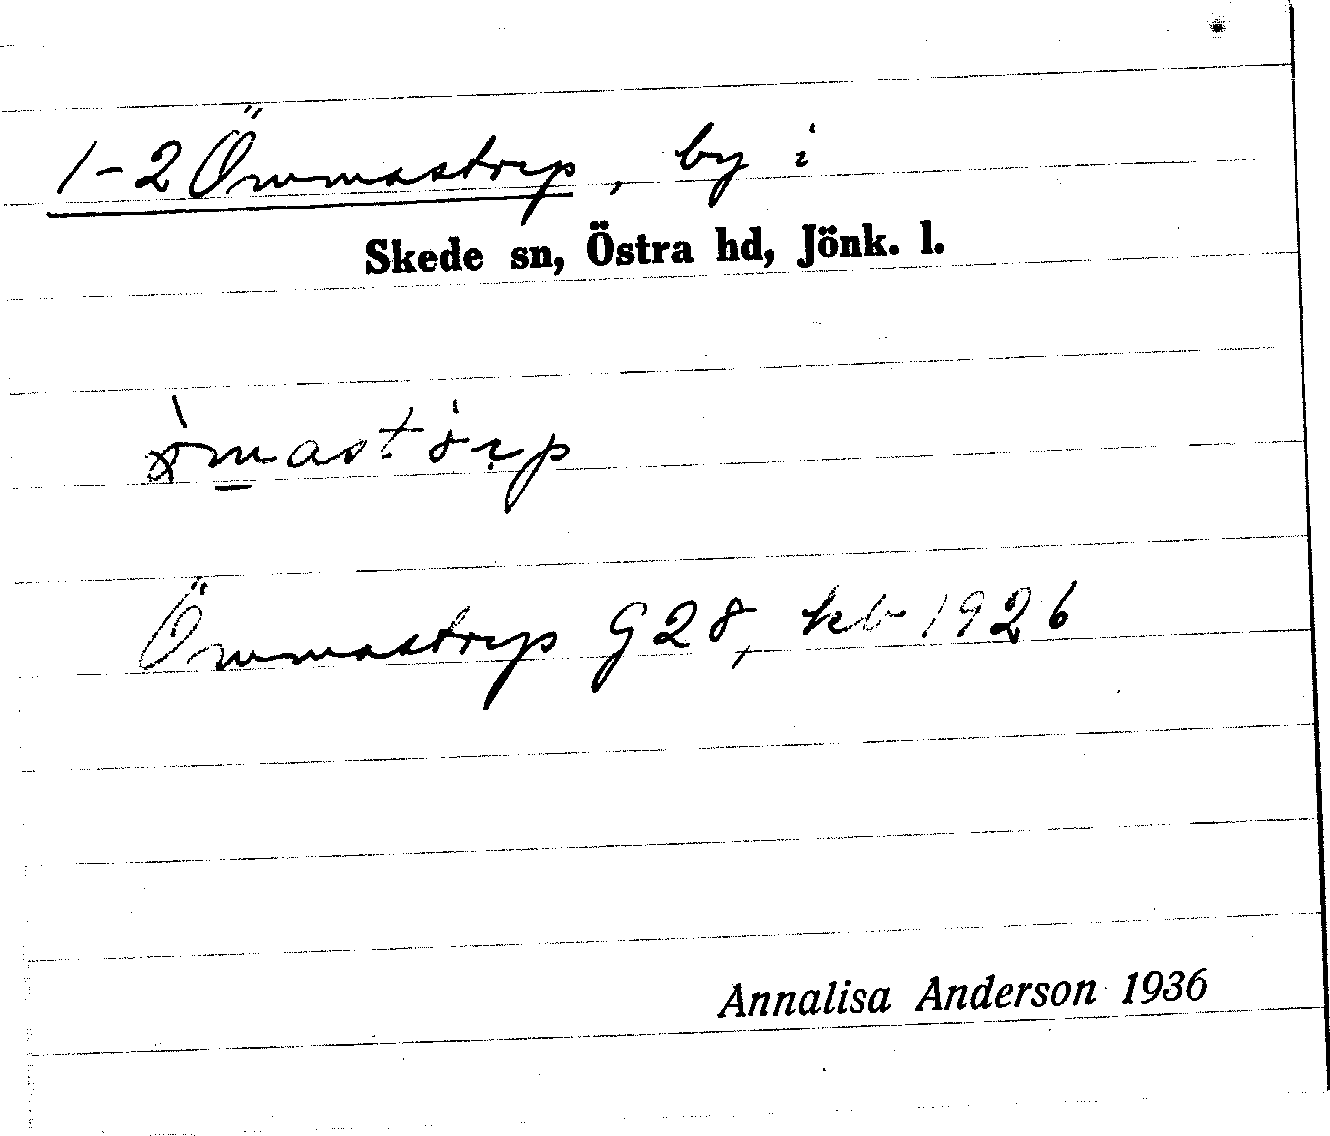 1-2 Ömmastorp, by i
Skede sn, Östra hd, Jönk. l.
Ömmastorp G 28, kb 1926
Annalisa Anderson 1936